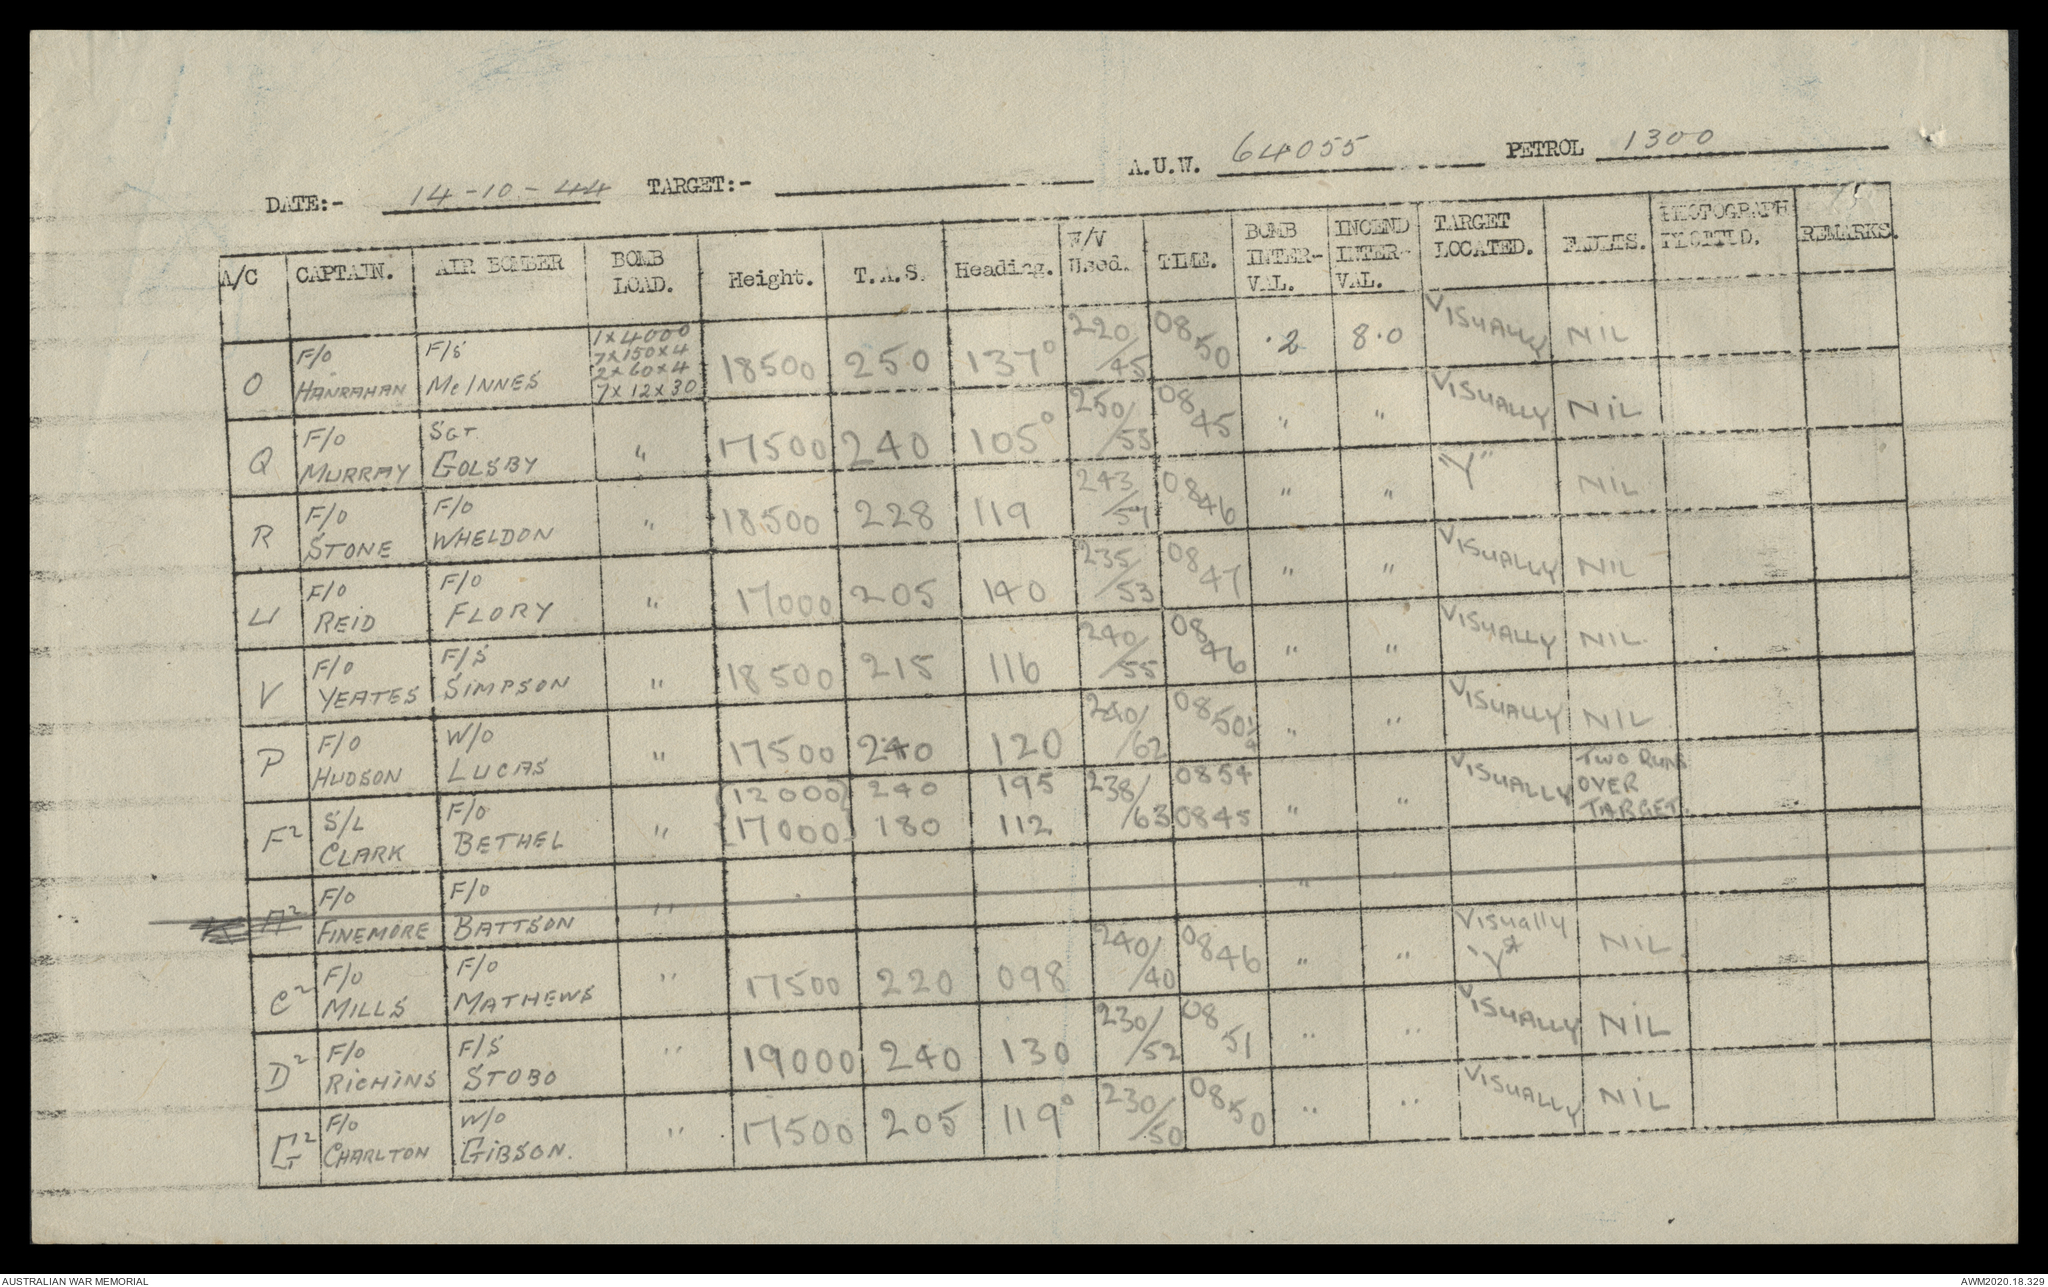 A.U.W. 64055 PETROL 1300
DATE:- 14-10-44 TARGET:-
A/C CAPTAIN. AIR BOMBER BOMB LOAD. Height. T.A.S. Heading. W/V Used. TIME. BOMB INTER-VAL. INCEND INTER-VAL. TARGET LOCATED. FAULTS. PHOTOGRAPH PLOTTED. REMARKS.
O F/O HANRAHAN F/S McINNES 1 x 4000 7 x 150 x 4 2 x 60 x 4 7 x 12 x 30 18500 250 137° 220/45 0850 .2 8.0 VISUALLY NIL
Q F/O MURRAY SGT. GOLSBY " 17500 240 105° 250/53 0845 " " VISUALLY NIL
R F/O STONE F/O WHELDON " 18500 228 119 243/57 0846 " " "Y" NIL
U F/O REID F/O FLORY " 17000 205 140 235/53 0847 " " VISUALLY NIL
V F/O YEATES F/S SIMPSON " 18500 215 116 240/55 0846 " " VISUALLY NIL
P F/O HUDSON W/O LUCAS " 17500 240 120 240/62 0850½ " " VISUALLY NIL
F² S/L CLARK F/O BETHEL " 12000 240 195 238/63 0854 " " VISUALLY TWO RUNS OVER TARGET.
17000 180 112 0845
A² F/O FINEMORE F/O BATTSON " "
C² F/O MILLS F/O MATHEWS " 17500 220 098 240/40 0846 " " Visually "Y" NIL
D² F/O RICHINS F/S STOBO " 19000 240 130 230/52 0851 " " VISUALLY NIL
G² F/O CHARLTON W/O GIBSON. " 17500 205 119° 230/50 0850 " " VISUALLY NIL
AUSTRALIAN WAR MEMORIAL AWM2020.18.329